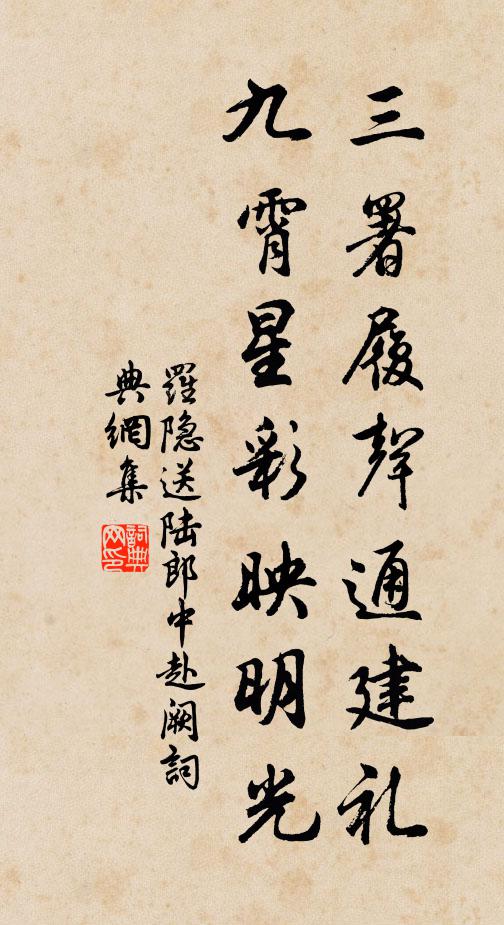 三署履聲通建礼
九霄星彩映明光
羅隐送陆郎中赴阙詞
典網集
詞典网印